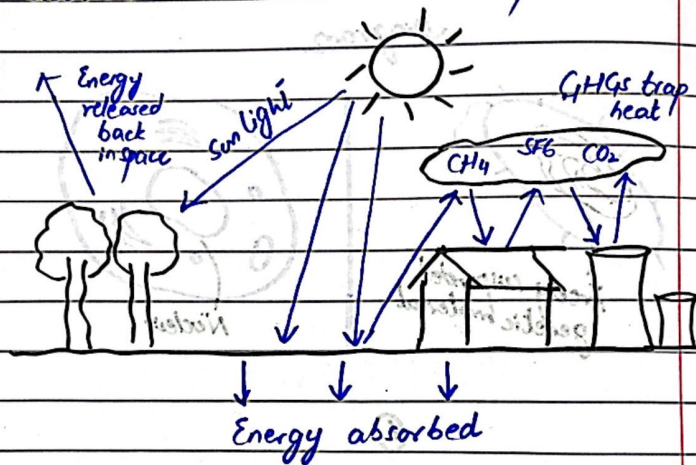 Energy
released
back
in space
Sun light
GHGs trap
heat
CH4
SF6
CO2
Energy absorbed